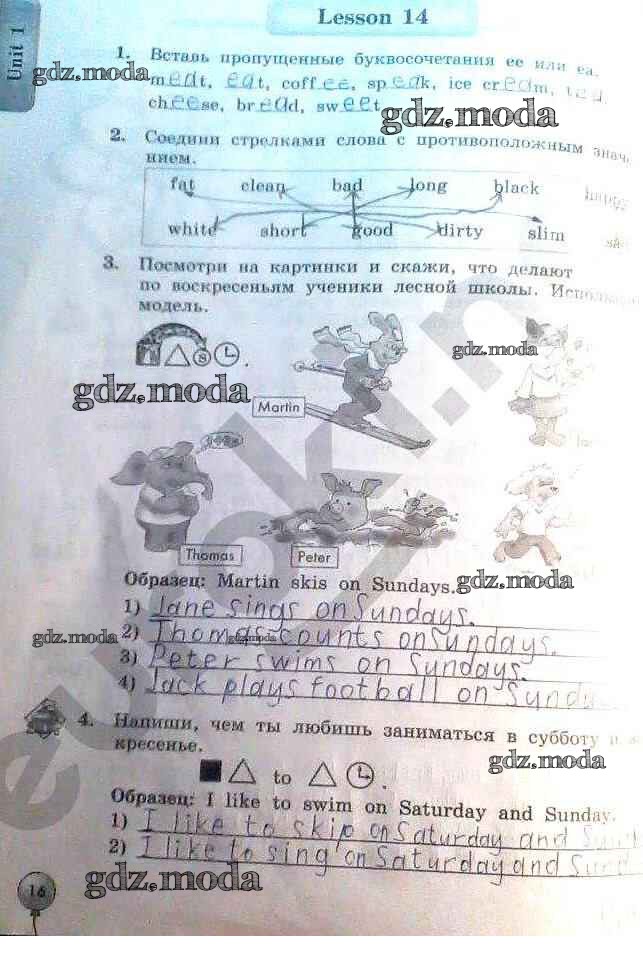 Unit 1
Lesson 14
1. Вставь пропущенные буквосочетания ee или ea.
meat, eat, coffee, speak, ice cream,
cheese, bread, sweet
2. Соедини стрелками слова с противоположным знач
нием.
fat clean bad long black happy
white short good dirty slim
3. Посмотри на картинки и скажи, что делают
по воскресеньям ученики лесной школы. Используй
модель.
S
Martin
Thomas
Peter
Образец: Martin skis on Sundays.
1) Jane sings on Sundays.
2) Thomas counts on Sundays.
3) Peter swims on Sundays.
4) Jack plays football on Sunda
4. Напиши, чем ты любишь заниматься в субботу и в
кресенье.
to .
Образец: I like to swim on Saturday and Sunday.
1) I like to skip on Saturday and Sund
2) I like to sing on Saturday and Sund
16
gdz.moda
gdz.moda
gdz.moda
gdz.moda
gdz.moda
gdz.moda
gdz.moda
gdz.moda
gdz.moda